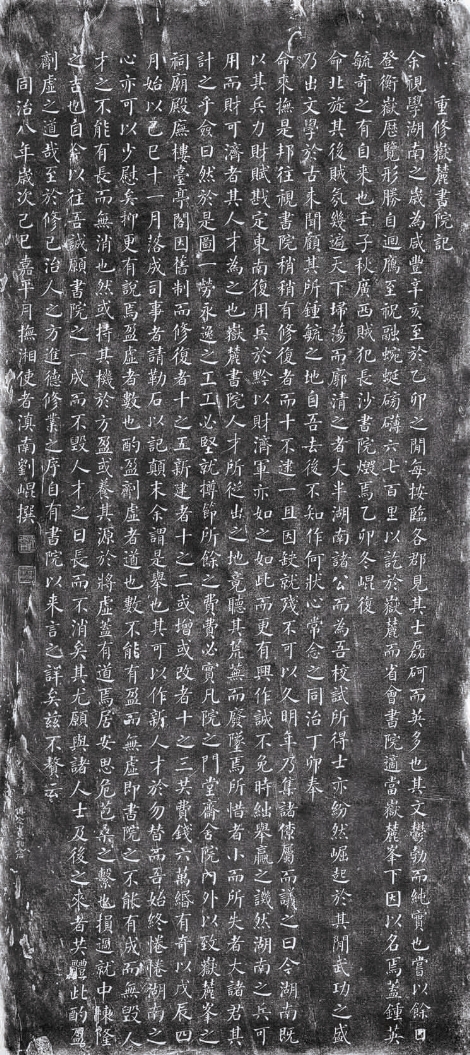 重修嶽麓書院記
余視學湖南之歲為咸豐辛亥至於乙卯之閒每按臨各郡見其士磊砢而英多也其文鬱勃而純實也嘗以餘日
登衡嶽歷覽形勝自迴鴈至祝融蜿蜒磅礴六七百里以訖於嶽麓而省會書院適當嶽麓峯下因以名焉蓋鍾英
毓奇之有自來也壬子秋廣西賊犯長沙書院燬焉乙卯冬崐復
命北旋其後賊氛幾遍天下埽蕩而廓清之者大半湖南諸公而為吾校試所得士亦紛然崛起於其閒武功之盛
乃出文學於古未聞顧其所鍾毓之地自吾去後不知作何狀心常念之同治丁卯奉
命來撫是邦往視書院稍稍有修復者而十不逮一且因鈌就殘不可以久明年乃集諸僚屬而議之曰今湖南既
以其兵力財賦戡定東南復用兵於黔以財濟軍亦如之如此而更有興作誠不免時絀舉贏之譏然湖南之兵可
用而財可濟者其人才為之也嶽麓書院人才所從出之地竟聽其荒蕪而廢墜焉所惜者小而所失者大諸君其
計之乎僉曰然於是圖一勞永逸之工工必堅就撙節所餘之費費必實凡院之門堂齋舍院內外以致嶽麓峯之
祠廟殿廡樓臺亭閣因舊制而修復者十之五新建者十之二或增或改者十之三共費錢六萬緡有奇以戊辰四
月始以己巳十一月落成司事者請勒石以記顛末余謂是舉也其可以作新人才於勿替而吾始終惓惓湖南之
心亦可以少慰矣抑更有說焉盈虛者數也酌盈劑虛者道也數不能有盈而無虛即書院之不能有成而無毀人
才之不能有長而無消也然或持其機於方盈或養其源於將虛蓋有道焉居安思危苞桑之繫也損過就中棟隆
之吉也自今以往吾誠願書院之一成而不毀人才之日長而不消矣其尤願與諸人士及後之來者共體此酌盈
劑虛之道哉至於修己治人之方進德修業之序自有書院以來言之詳矣茲不贅云
同治八年歲次己巳嘉平月撫湘使者滇南劉崐撰